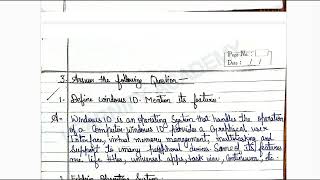 Page No:
Date: / /
3. Answer the following Question -
1. Define windows 10. Mention its feature.
A- Windows 10 is an operating System that handles the operation
of a Computer. windows 10 provides a Graphical user
Interface, virtual memory management, multitasking and
support to many peripheral devices. Some of its features
are life tiles, universal apps, task view, continuum, etc.